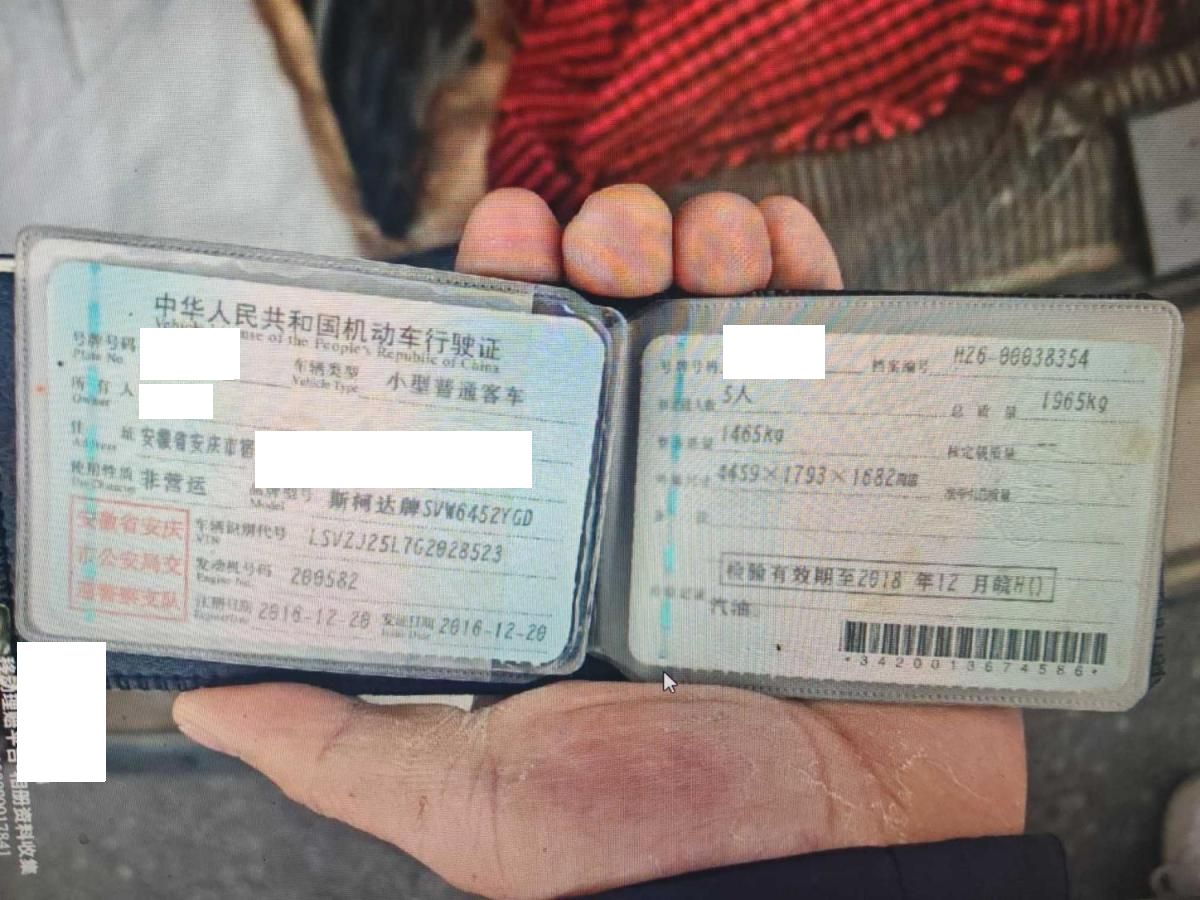 中华人民共和国机动车行驶证
Vehicle License of the People's Republic of China
号牌号码
Plate No
车辆类型 小型普通客车
Vehicle Type
所有人
Owner
住址 安徽省安庆市宿
Address
使用性质 非营运 品牌型号 斯柯达牌SVW6452YGD
Use Character Model
安徽省安庆
市公安局交
通警察支队
车辆识别代号 LSVZJ25L7G2028523
VIN
发动机号码 200582
Engine No.
注册日期 2016-12-20 发证日期 2016-12-20
Register Date Issue Date
号牌号码 档案编号 HZ6-00038354
核定载人数 5人 总质量 1965kg
整备质量 1465kg 核定载质量 --
外廓尺寸 4459×1793×1682mm 准牵引总质量 --
备注
检验有效期至2018 年12 月皖H()
检验记录
汽油
*3420013674586*